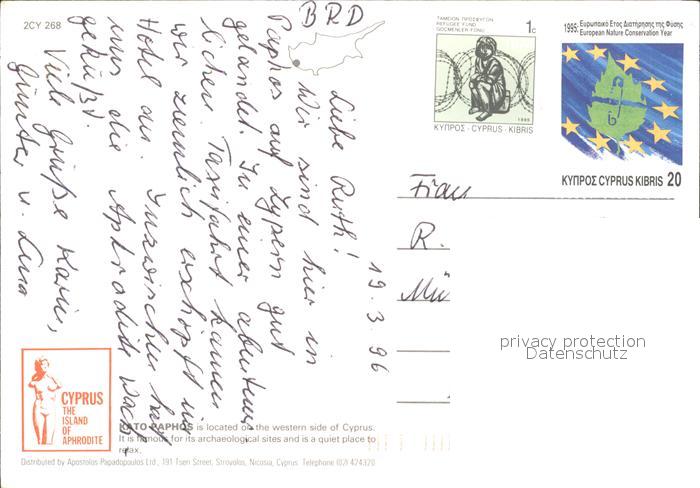 2CY 268
BRD
19.3.96
Liebe Ruth!
Wir sind hier in
Paphos auf Zypern gut
gelandet. In einer abenteuer-
lichen Taxifahrt kamen
wir ziemlich erschöpft im
Hotel an. Inzwischen hat
uns die Aphrodite wach-
geküßt.
Viele Grüße Karin,
Günter u. Lina
ΤΑΜΕΙΟΝ ΠΡΟΣΦΥΓΩΝ
REFUGEE FUND
GÖÇMENLER FONU
1c
1995
ΚΥΠΡΟΣ - CYPRUS - KIBRIS
1995: Ευρωπαϊκό Έτος Διατήρησης της Φύσης
European Nature Conservation Year
ΚΥΠΡΟΣ CYPRUS KIBRIS 20
Frau
R.
Mü
privacy protection
Datenschutz
CYPRUS
THE
ISLAND
OF
APHRODITE
KATO PAPHOS is located on the western side of Cyprus.
It is famous for its archaeological sites and is a quiet place to
relax.
Distributed by Apostolos Papadopoulos Ltd., 191 Tseri Street, Strovolos, Nicosia, Cyprus. Telephone (02) 424320